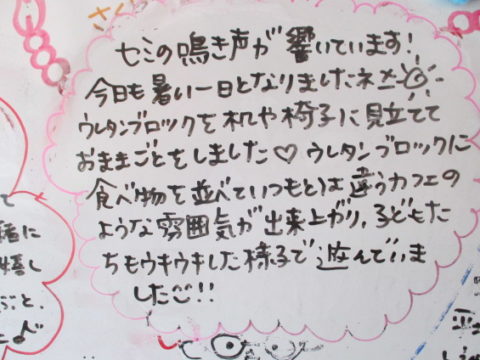 さくら
セミの鳴き声が響いています!
今日も暑い一日となりましたネ
ウレタンブロックを机や椅子に見立てて
おままごとをしました♡ ウレタンブロックに
食べ物を並べていつもとは違うカフェの
ような雰囲気が出来上がり、子どもた
ちもウキウキした様子で遊んでいま
したご!!
て
緒に
嬉し
ごと、